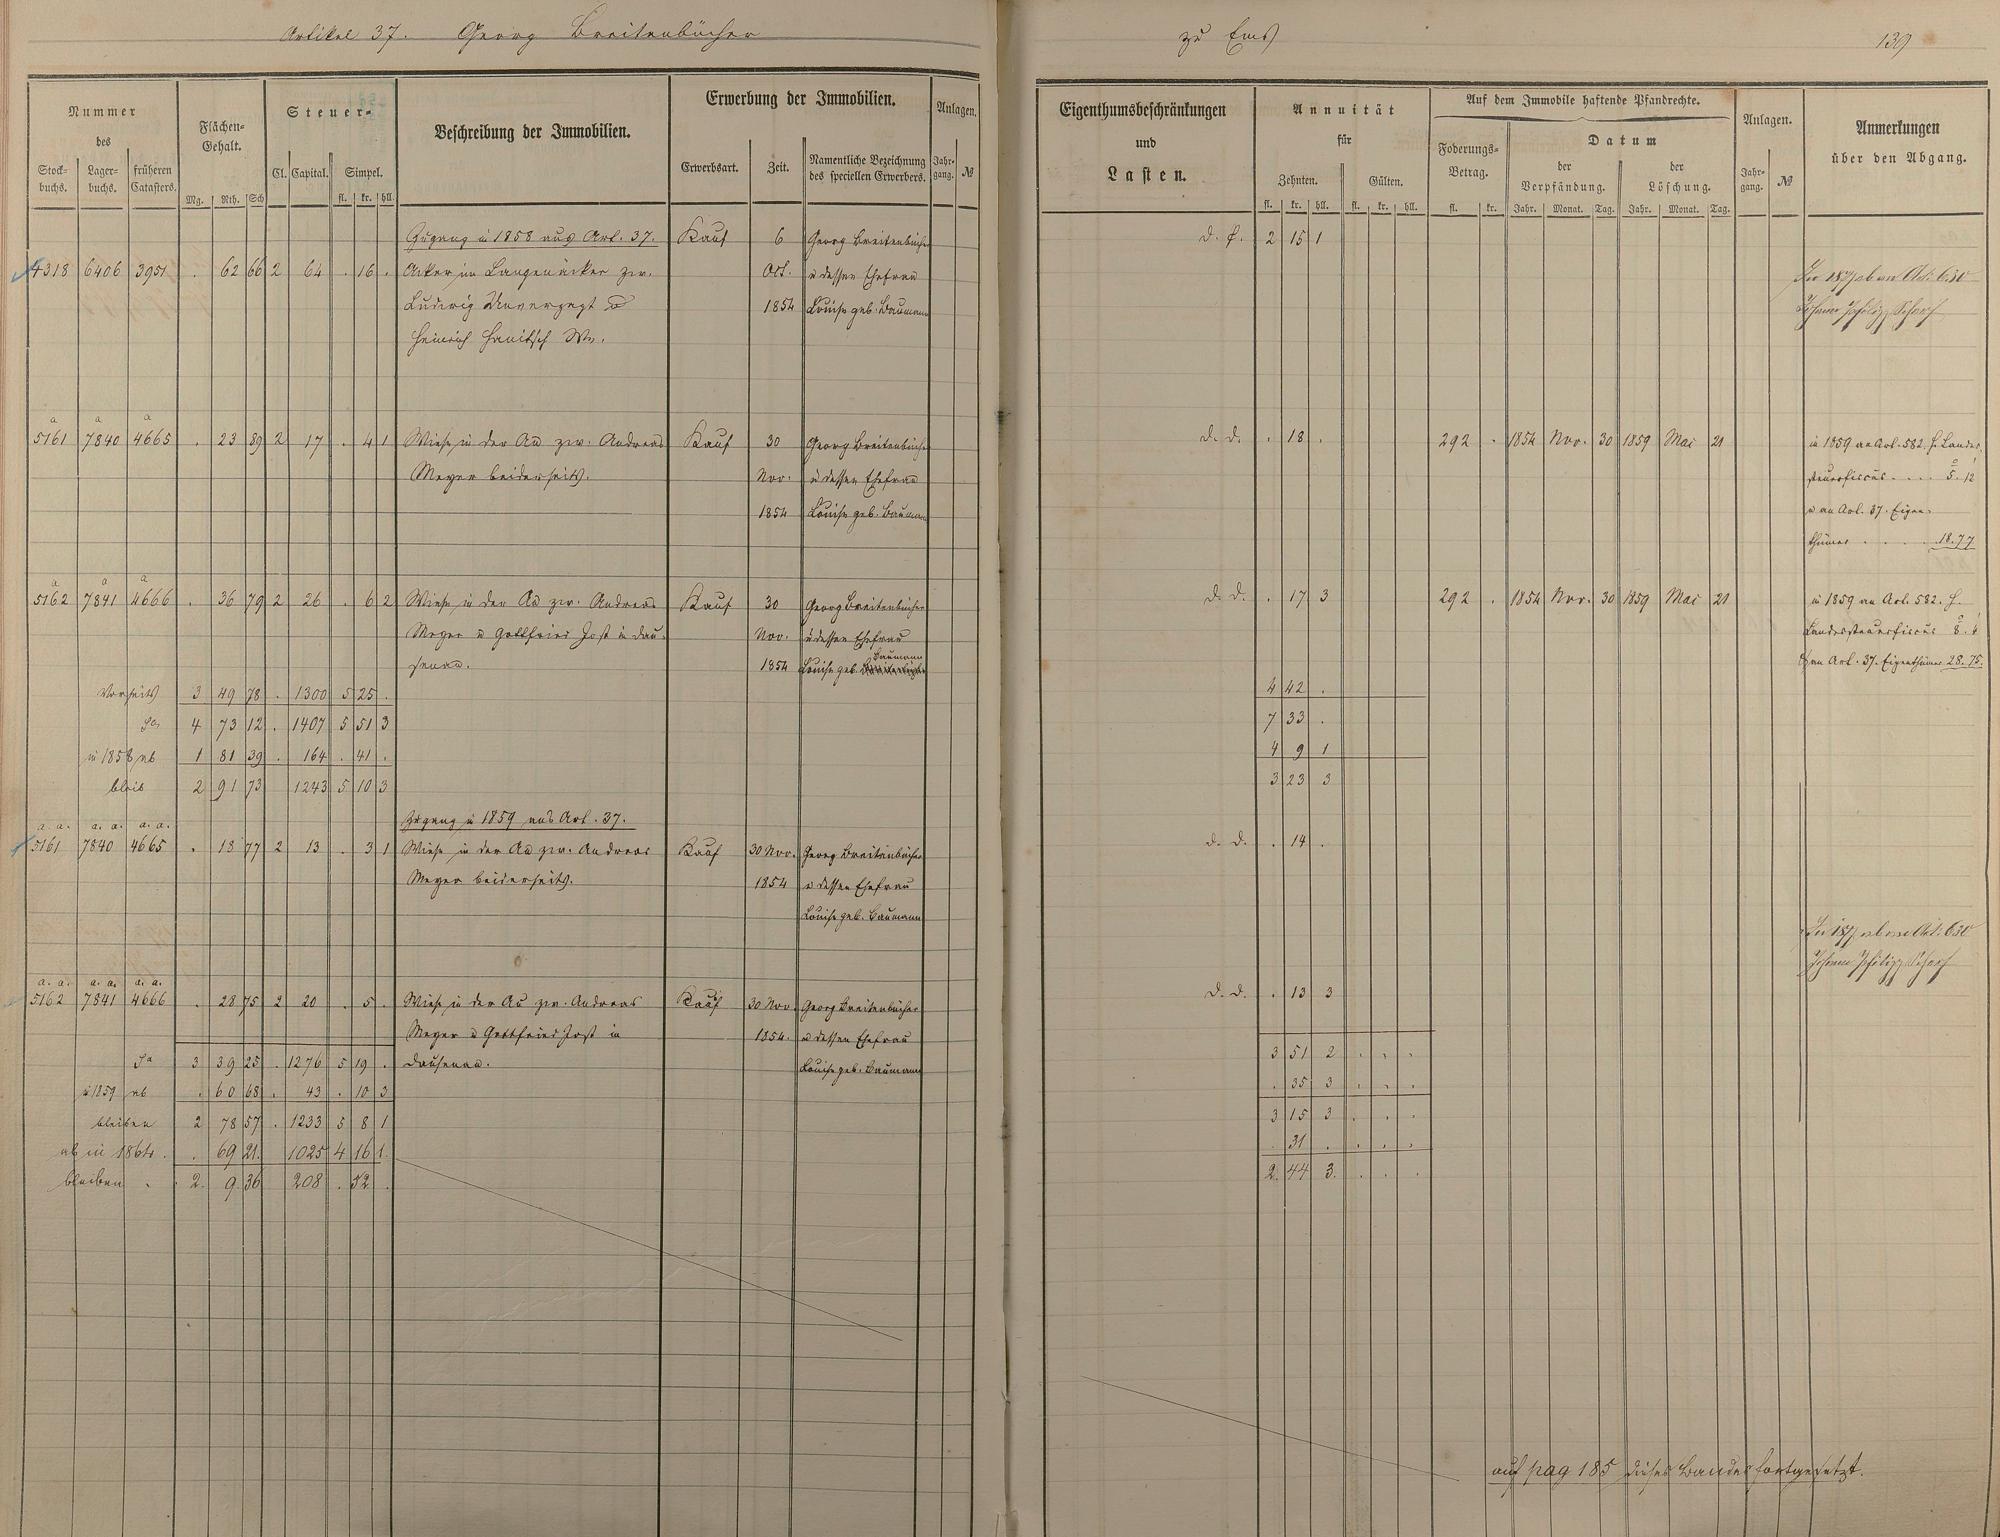 Artikel 37. Georg Breitenbücher zu Ems 139
Nummer des
Stockbuchs. Lagerbuchs. früheren Catasters.
Flächen-Gehalt.
Mg. Rth. Sch
Steuer-
Cl. Capital. Simpel.
fl. kr. hll.
Beschreibung der Immobilien.
Erwerbung der Immobilien.
Erwerbsart. Zeit. Namentliche Bezeichnung des speciellen Erwerbers.
Anlagen.
Jahrgang. №
Eigenthumsbeschränkungen und Lasten.
Annuität für
Zehnten. Gülten.
fl. kr. hll. fl. kr. hll.
Auf dem Immobile haftende Pfandrechte.
Foderungs-Betrag.
fl. kr.
Datum
der Verpfändung. der Löschung.
Jahr. Monat. Tag. Jahr. Monat. Tag.
Anlagen.
Jahrgang. №
Anmerkungen über den Abgang.
Zugang in 1858 aus Art. 37. Kauf 6 Georg Breitenbücher d. f. 2 15 1
4318 6406 3951 . 62 66 2 64 . 16 . Acker im Langenäcker zw. Oct. u dessen Ehefrau In 1877 ab an Art. 630
Ludwig Unverzagt u 1854 Louise geb. Baumann Johann Philipp Scharf
Heinrich Hanitsch Ww.
a a a
5161 7840 4665 . 23 89 2 17 . 4 1 Wiese in der Au zw. Andreas Kauf 30 Georg Breitenbücher d. d. . 18 . 292 . 1854 Nov. 30 1859 Mai 21 in 1859 an Art. 582. H. Landes-
Meyer beiderseits. Nov. u dessen Ehefrau steuerfiscus .... 5. 12
1854 Louise geb. Baumann u an Art. 37. Eigen-
thümer .... 18.77
a a a
5162 7841 4666 . 36 79 2 26 . 6 2 Wiese in der Au zw. Andreas Kauf 30 Georg Breitenbücher d. d. . 17 3 292 . 1854 Nov. 30 1859 Mai 21 in 1859 an Art. 582. H.
Meyer u Gottfried Jost in Dau- Nov. u dessen Ehefrau Landessteuerfiscus 8. 4
senau. 1854 Louise geb. Baumann & an Art. 37. Eigenthümer 28.75.
Vorseits 3 49 78 . 1300 5 25 . 4 42 .
Sa 4 73 12 . 1407 5 51 3 7 33 .
in 1858 ab 1 81 39 . 164 . 41 . 4 9 1
bleib 2 91 73 1243 5 10 3 3 23 3
Zugang in 1859 aus Art. 37.
a. a. a. a. a. a.
5161 7840 4665 . 18 77 2 13 . 3 1 Wiese in der Au zw. Andreas Kauf 30 Nov. Georg Breitenbücher d. d. . 14 .
Meyer beiderseits. 1854 u dessen Ehefrau
Louise geb. Baumann
In 1877 ab an Art. 630
Johann Philipp Scharf
a. a. a. a. a. a.
5162 7841 4666 . 28 75 2 20 . 5 . Wiese in der Au zw. Andreas Kauf 30 Nov. Georg Breitenbücher d. d. . 13 3
Meyer u Gottfried Jost in 1854. u dessen Ehefrau
Sa 3 39 25 . 1276 5 19 . Dausenau. Louise geb. Baumann 3 51 2 . . .
in 1859 ab . 60 68 . 43 . 10 3 . 35 3 . . .
bleiben 2 78 57 . 1233 5 8 1 3 15 3 . . .
ab in 1864 . . 69 21 . 1025 4 16 1 . 31 . . . .
bleiben . 2. 9 36 208 . 52 . 2. 44 3. . . .
auf pag 185 dieses Bandes fortgesetzt.